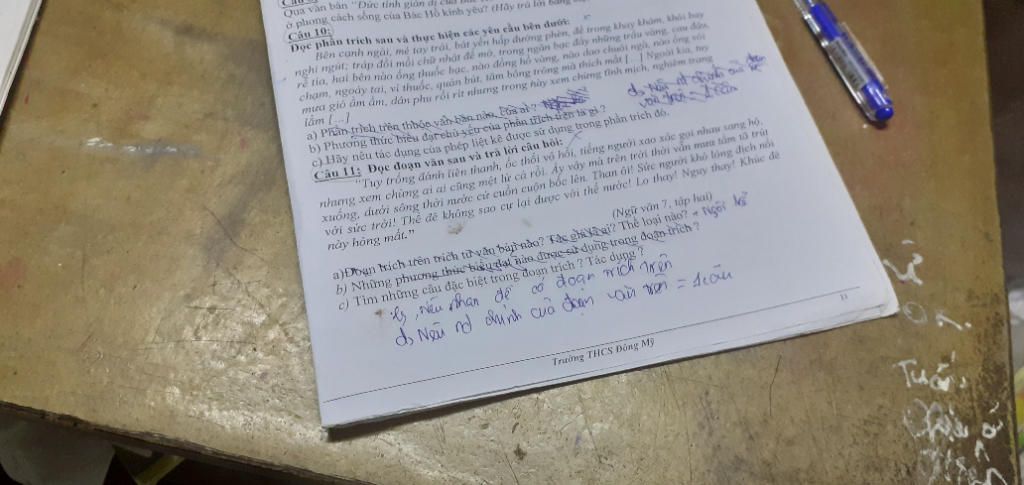 Qua văn bản "Đức tính giản dị của
ở phong cách sống của Bác Hồ kính yêu? (Hãy trả lời bằng
Câu 10:
Đọc phần trích sau và thực hiện các yêu cầu bên dưới:
"Bên cạnh ngài, mé tay trái, bát yến hấp đường phèn, để trong khay khảm, khói bay
nghi ngút; tráp đồi mồi chữ nhật để mở, trong ngăn bạc đầy những trầu vàng, cau đậu,
rễ tía, hai bên nào ống thuốc bạc, nào đồng hồ vàng, nào dao chuôi ngà, nào ống vôi
chạm, ngoáy tai, ví thuốc, quản bút, tăm bông trông mà thích mắt [...] Ngoài kia, tuy
mưa gió ầm ầm, dân phu rối rít nhưng trong này xem chừng tĩnh mịch, nghiêm trang
lắm [...]
a) Phần trích trên thuộc văn bản nào, của ai?
b) Phương thức biểu đạt chủ yếu của phần trích trên là gì?
c) Hãy nêu tác dụng của phép liệt kê được sử dụng trong phần trích đó.
d, Nêu nd chính của đoạn
văn trên = 1 câu
Câu 11: Đọc đoạn văn sau và trả lời câu hỏi:
"Tuy trống đánh liên thanh, ốc thổi vô hồi, tiếng người xao xác gọi nhau sang hộ,
nhưng xem chừng ai ai cũng mệt lử cả rồi. Ấy vậy mà trên trời thời vẫn mưa tầm tã trút
xuống, dưới sông thời nước cứ cuồn cuộn bốc lên. Than ôi! Sức người khó lòng địch nổi
với sức trời! Thế đê không sao cự lại được với thế nước! Lo thay! Nguy thay! Khúc đê
này hỏng mất."
(Ngữ văn 7, tập hai)
a)Đoạn trích trên trích từ văn bản nào? Tác giả là ai? Thể loại nào? + Ngôi kể
b) Những phương thức biểu đạt nào được sử dụng trong đoạn trích?
c) Tìm những câu đặc biệt trong đoạn trích? Tác dụng?
, nêu nhan đề có đoạn trích trên
d, Nêu nd chính của đoạn văn trên = 1 câu
11
Trường THCS Đông Mỹ